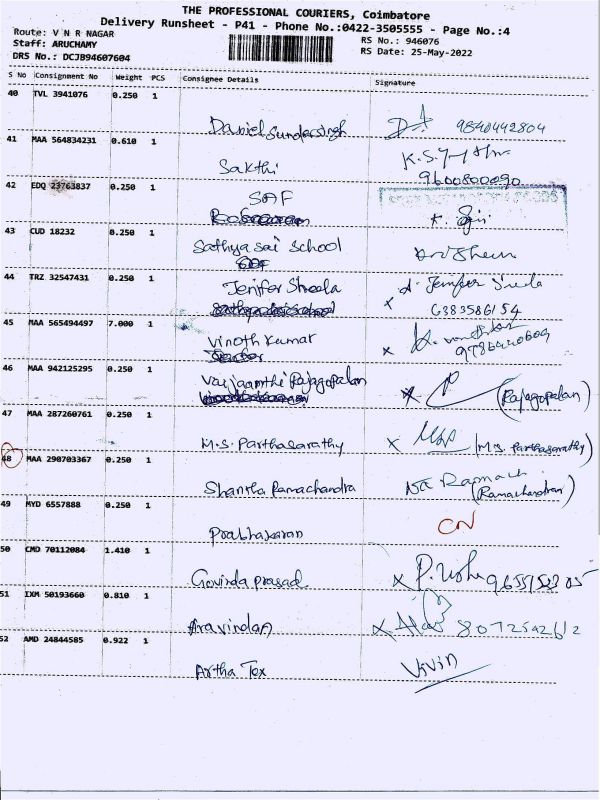 THE PROFESSIONAL COURIERS, Coimbatore
Delivery Runsheet - P41 - Phone No.:0422-3505555 - Page No.:4
Route: V N R NAGAR
Staff: ARUCHAMY
DRS No.: DCJB94607604
RS No.: 946076
RS Date: 25-May-2022
S No Consignment No Weight PCS Consignee Details Signature
40 TVL 3941076 0.250 1
Daniel Sundersingh 9840442804
41 MAA 564834231 0.610 1
Sakthi
9600800090
42 EDQ 23763837 0.250 1
SAF
43 CUD 18232 0.250 1
Sathya sai School
44 TRZ 32547431 0.250 1
Jenifer Sheela
6383586154
45 MAA 565494497 7.000 1
Vinoth Kumar
46 MAA 942125295 0.250 1
Rajagopalan (Rajagopalan)
47 MAA 287260761 0.250 1
M.S. Parthasarathy X (M.S. Parthasarathy)
48 MAA 290703367 0.250 1
Shantha Ramachandra (Ramachandran)
49 MYD 6557888 0.250 1
Prabhakaran CN
50 CMD 70112084 1.410 1
Govinda prasad X
51 IXM 50193660 0.810 1
Aravindan X 8072592612
52 AMD 24844585 0.922 1
Artha Tex Vivin